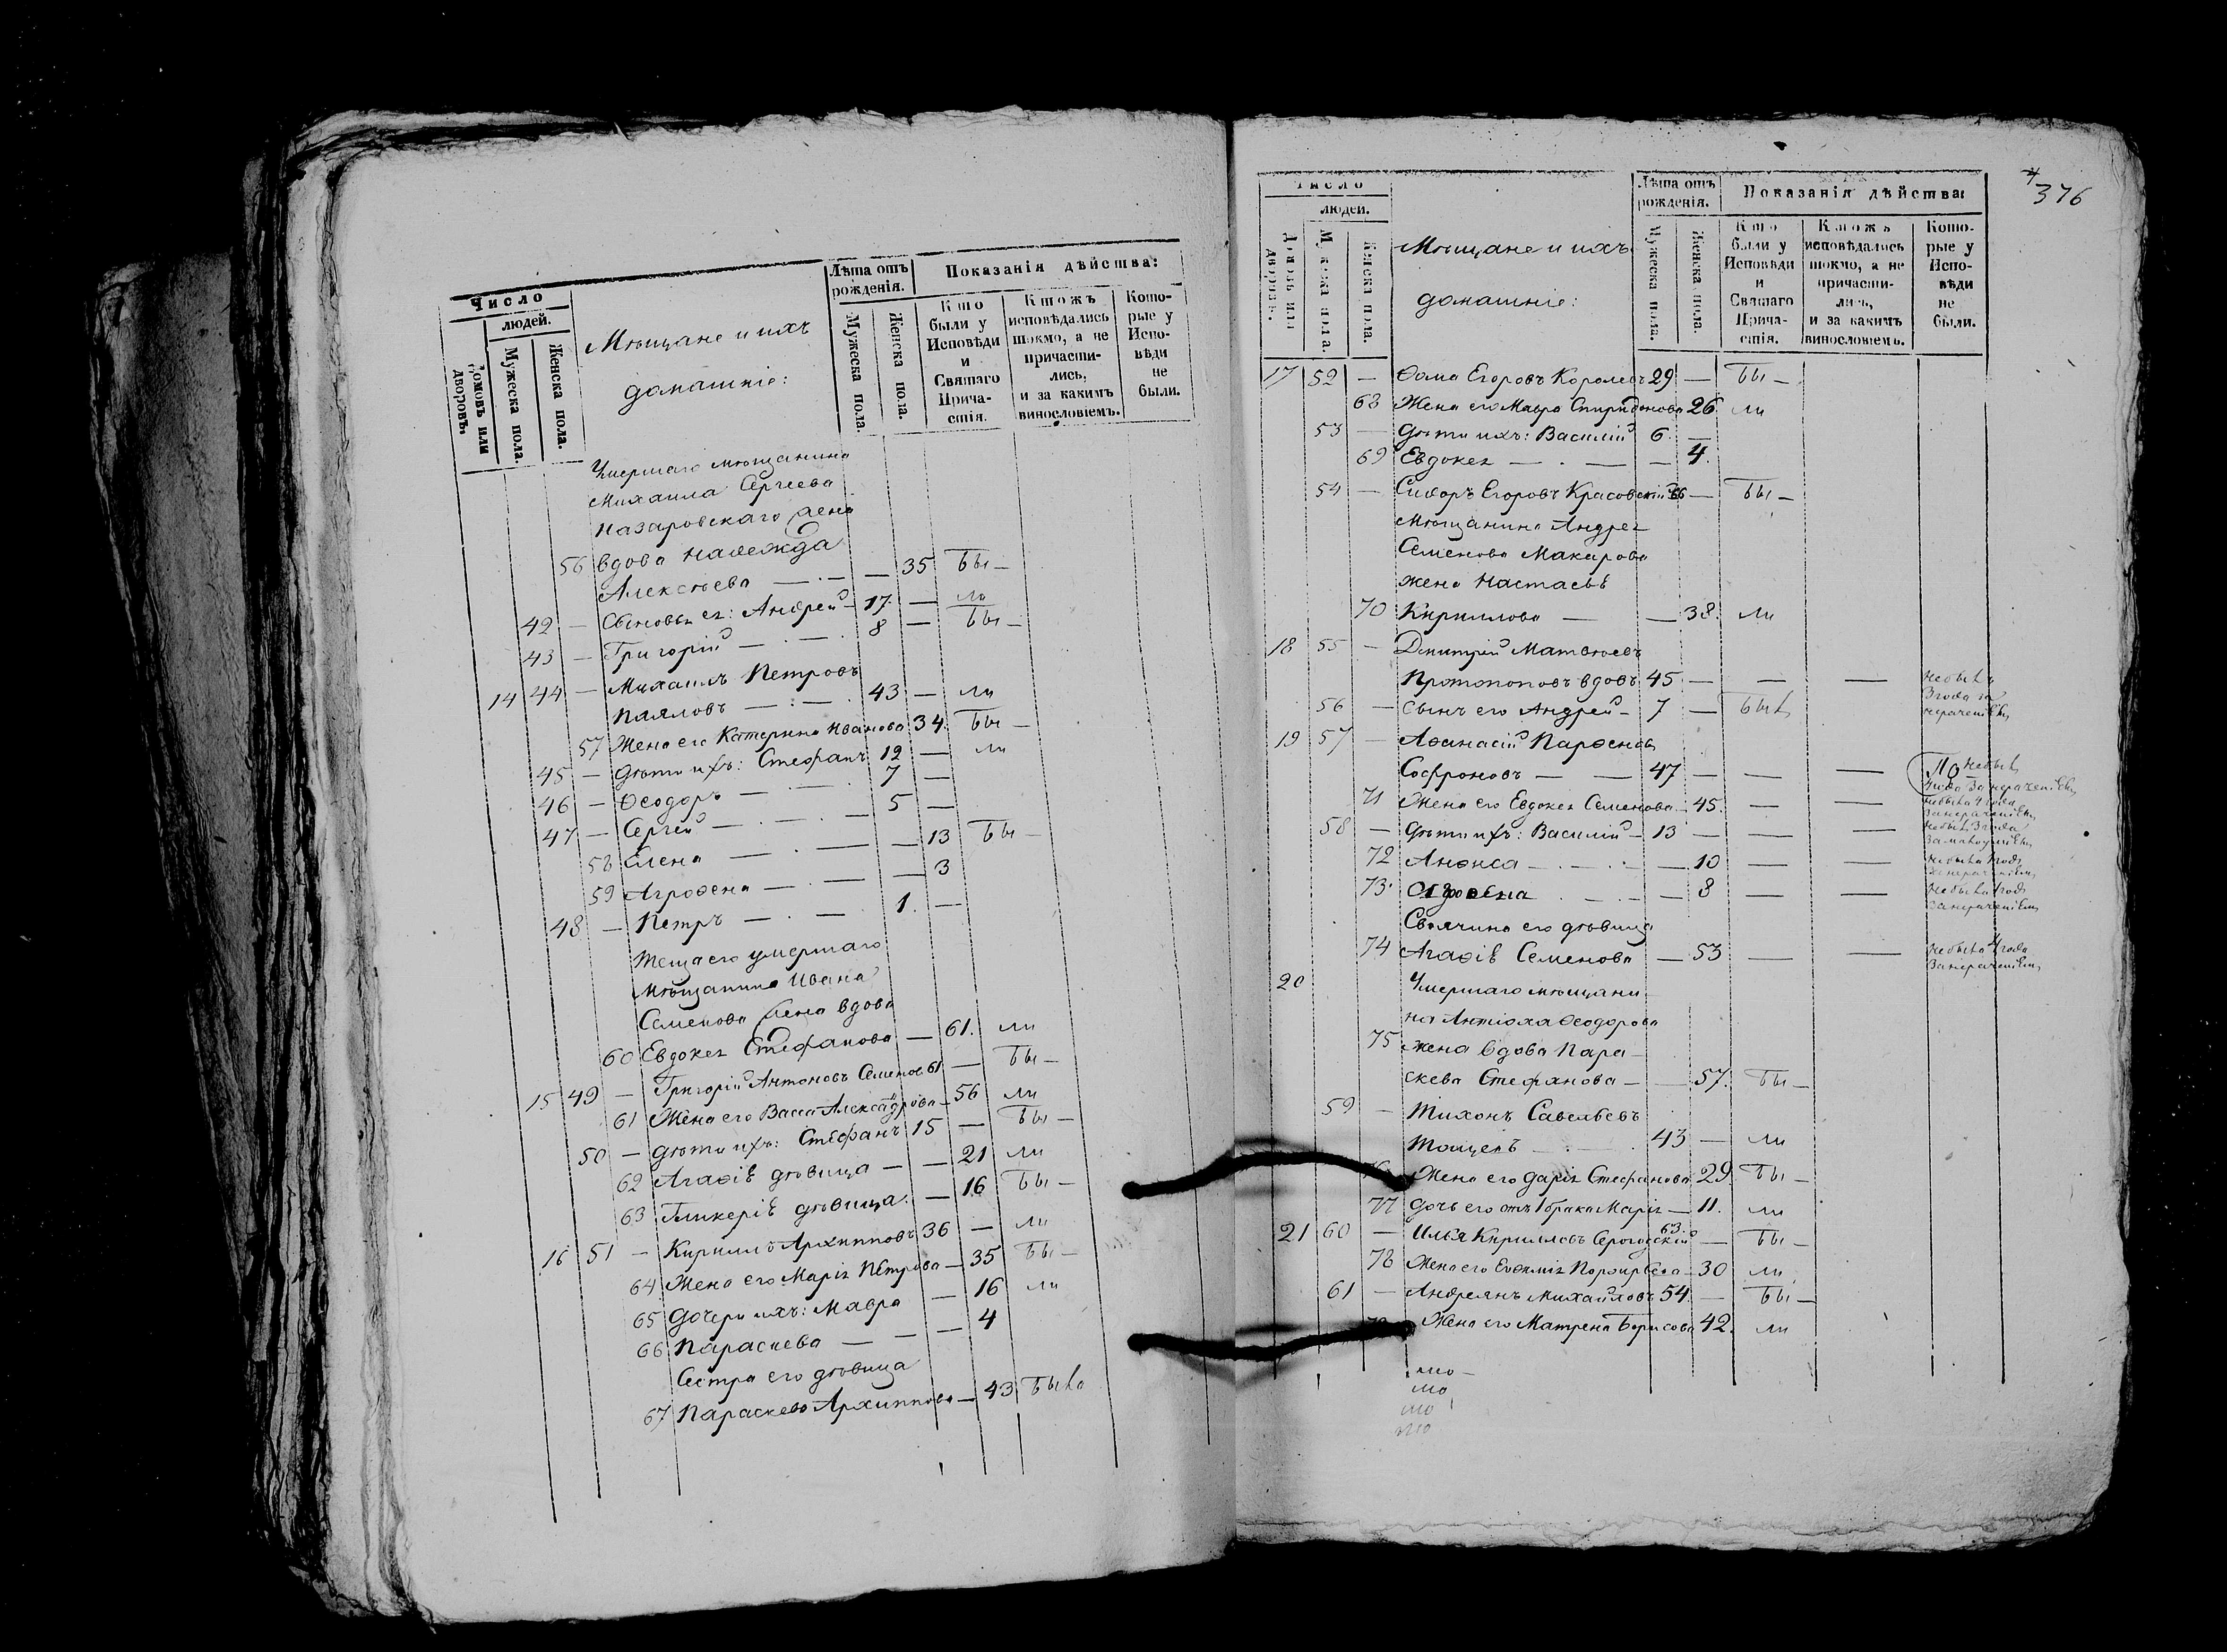 Число
людей.
Домовъ или дворовъ.
Мужеска пола.
Женска пола.
Мѣщане и ихъ
домашніе:
Лѣта отъ рожденія.
Мужеска пола.
Женска пола.
Показанія дѣйства:
Кто были у Исповѣди и Святаго Прича-стія.
Ктожъ исповѣдались токмо, а не причасти-лись, и за какимъ винословіемъ.
Кото-рые у Испо-вѣди не были.
Умершаго мѣщанина
Михаила Сергеева
Назаровскаго жена
56 вдова Надежда
Алексѣева — 35 бы —
42 — Сыновья ея: Андрей — 17. — ли
43 — Григорій — 8 — бы —
14 44 — Михаилъ Петровъ
Паяловъ — 43 — ли
57 Жена его Катерина Иванова 34. бы —
45 — Дѣти ихъ: Стефанъ 12 — ли
46 — Ѳеодоръ — 7 —
47 — Сергей — 5 —
58 Елена — — 13 бы —
59 Агроѳена — — 3
48 — Петръ — 1. —
Теща его умершаго
Мѣщанина Ивана
Семенова жена вдова
60 Евдокея Стефанова — 61. ли
15 49 — Григорій Антоновъ Семенов 61 — бы —
61 Жена его Васса Александрова — 56 ли
50 — Дѣти ихъ: Стефанъ 15 — бы —
62 Агаѳія дѣвица — — 21 ли
63 Гликерія дѣвица. — 16 бы —
16 51 — Кириллъ Архипповъ 36 — ли
64 Жена его Марія Петрова — 35 бы —
65 Дочери ихъ: Мавра — 16 ли
66 Параскева — — 4
Сестра его дѣвица
67 Параскева Архиппова — 43 была
376
Число
людей.
Домовъ или дворовъ.
Мужеска пола.
Женска пола.
Мѣщане и ихъ
домашніе:
Лѣта отъ рожденія.
Мужеска пола.
Женска пола.
Показанія дѣйства:
Кто были у Исповѣди и Святаго Прича-стія.
Ктожъ исповѣдались токмо, а не причасти-лись, и за какимъ винословіемъ.
Кото-рые у Испо-вѣди не были.
17 52 — Ѳома Егоровъ Королевъ 29 — бы —
68 Жена его Мавра Спиридонова 26 ли
53 — Дѣти ихъ: Василій 6. —
69 Евдокея — — 4.
54 — Сидоръ Егоровъ Красовскій 66 — бы —
Мѣщанина Андрея
Семенова Макарова
жена Настасья
70 Кириллова — — 38. ли
18 55 — Дмитрій Матвѣевъ
Протопоповъ вдовъ 45 — — — небылъ
3 года за
нераченіемъ
56 — Сынъ его Андрей — 7 — былъ
19 57 — Аѳанасій Парѳеновъ
Софроновъ — 47 — — — небылъ
71 Жена его Евдокея Семенова — 45. — —
58 — Дѣти ихъ: Василій — 13 — — —
72 Анѳиса — — 10 — —
73. — 8 — —
Своячина его дѣвица
74 Агаѳія Семенова — 53 — — небыла 4 года
занераченіемъ
20 Умершаго мѣщани-
на Антіоха Ѳеодорова
75 жена вдова Пара-
скева Стефанова — — 57. бы —
59 — Тихонъ Савельевъ
Тощевъ — 43 — ли
Жена его Дарія Стефанова 29 бы —
77 Дочь его отъ 1 брака Марія — 11. ли
21 60 — Илья Кирилловъ Серогодскій 63 — бы —
78 Жена его Евѳимія Порфирьева — 30 ли
61 — Андреянъ Михайловъ 54. — бы —
Жена его Матрена Борисова 42. ли